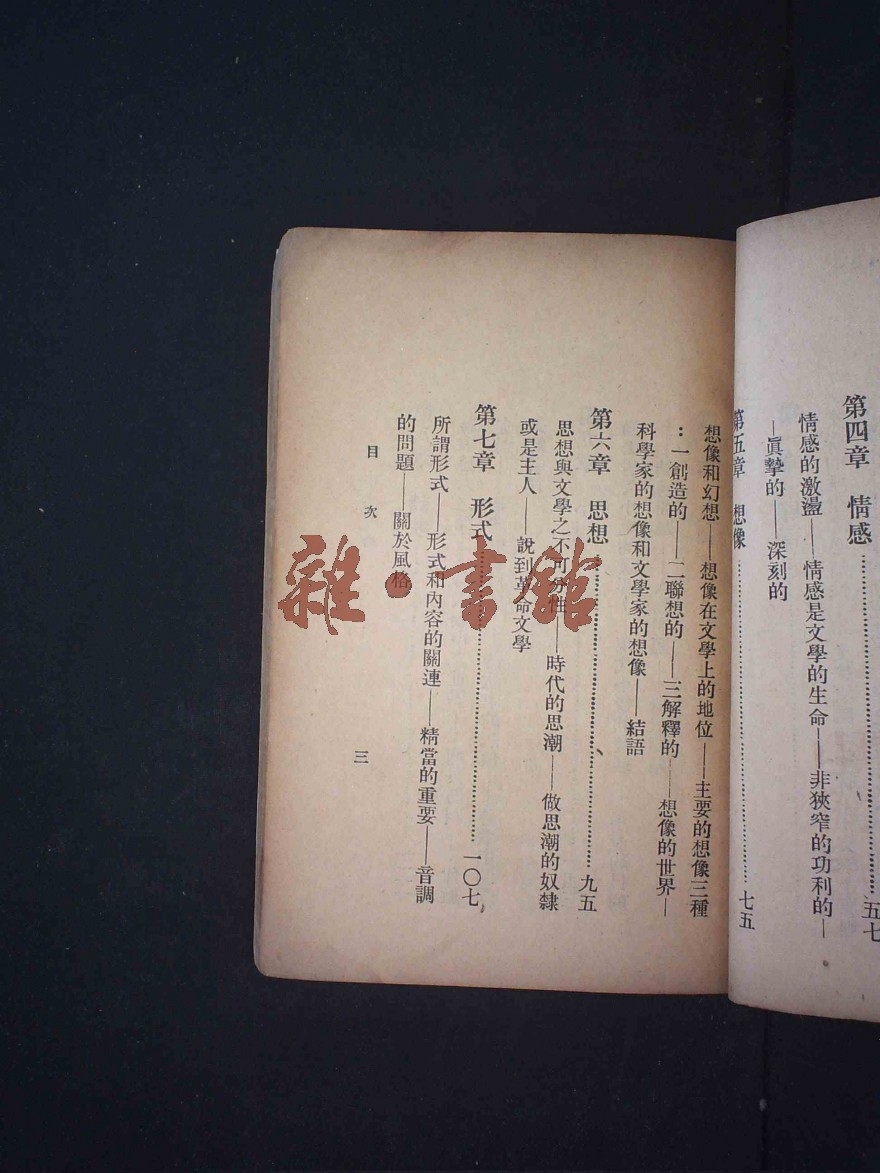 第四章　情感……………………五七
情感的激盪——情感是文學的生命——非狹窄的功利的—
—眞摯的——深刻的
第五章　想像……………………七五
想像和幻想——想像在文學上的地位——主要的想像三種
：一創造的——二聯想的——三解釋的——想像的世界—
科學家的想像和文學家的想像——結語
第六章　思想……………………九五
思想與文學之不可分性——時代的思潮——做思潮的奴隸
或是主人——說到革命文學
第七章　形式……………………一〇七
所謂形式——形式和內容的關連——精當的重要——音調
的問題——關於風格
目次
三
雜·書館